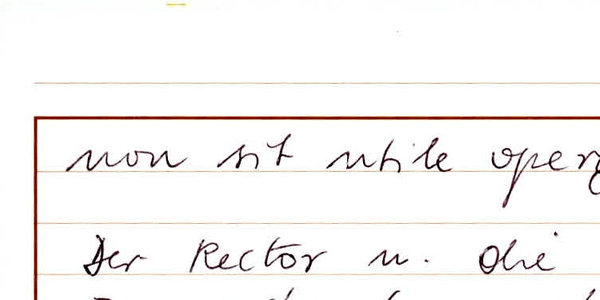 non sit utile oper
Der Rector u. die